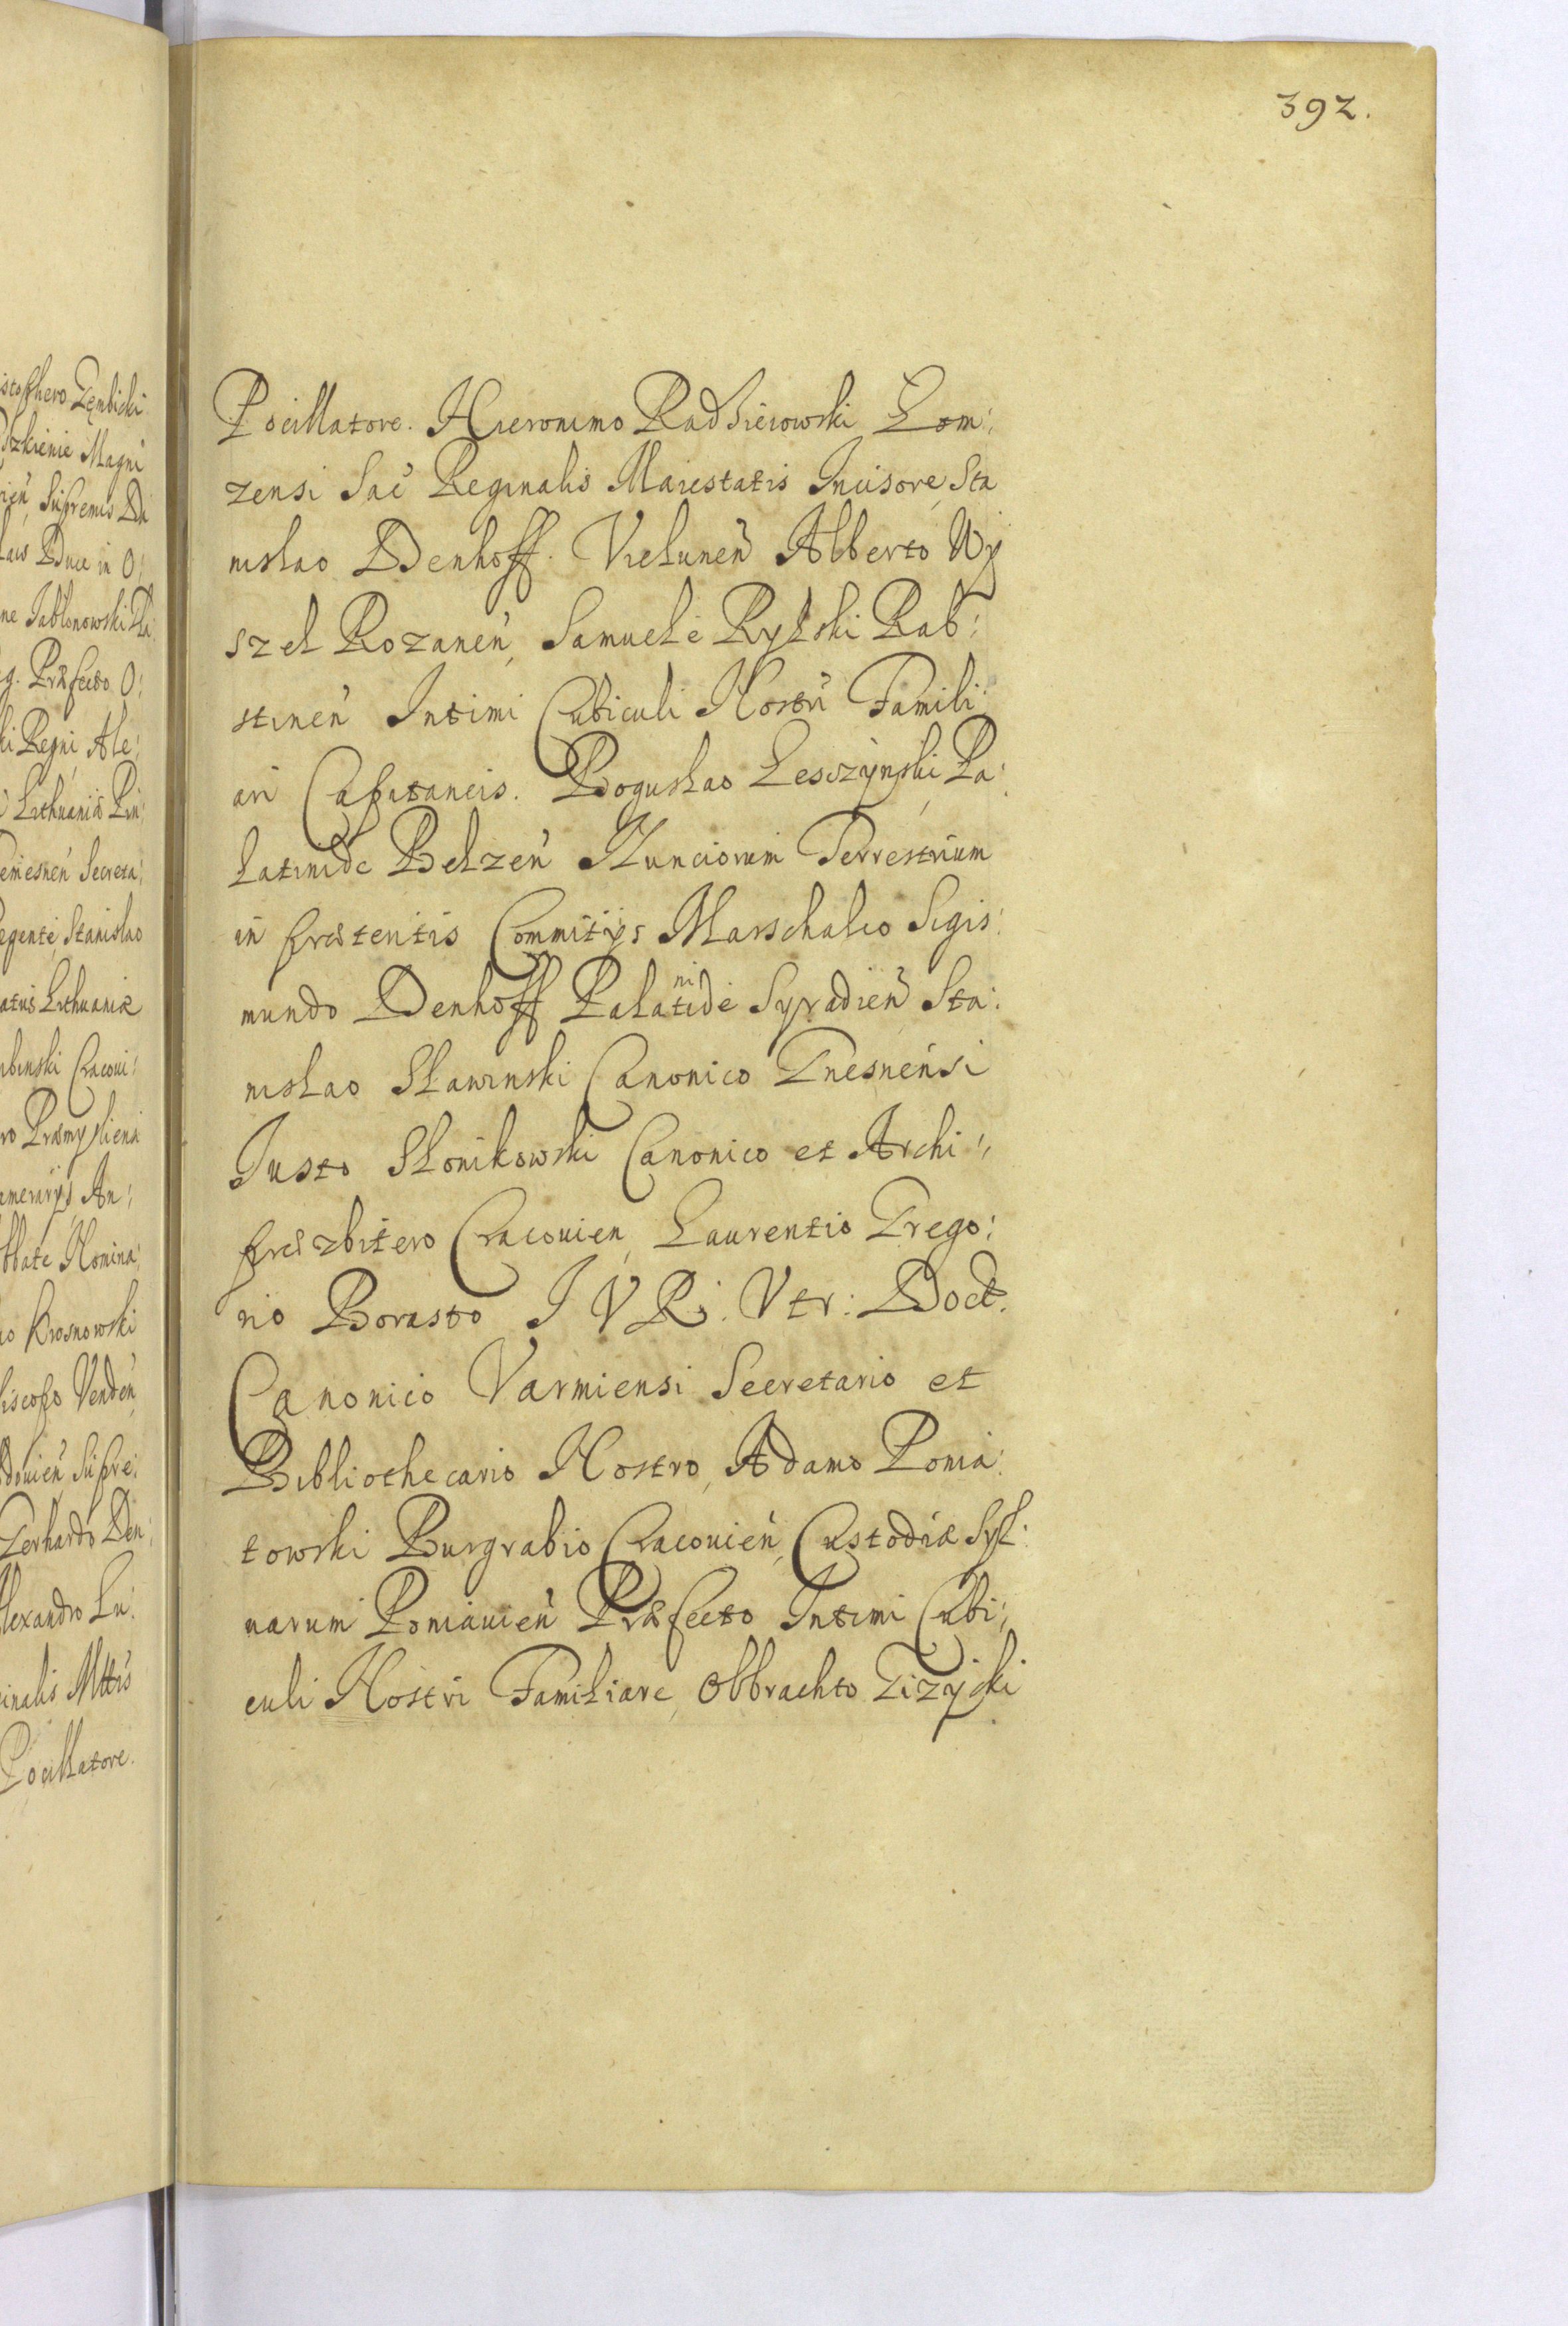 istophero Gębicki
dzkienie Magni
ień, Supremis Da
laus Duce in O:
ne Jabłonowski Pa:
g. Præfecto O:
ki Regni, Ale:
Lithuaniæ Prin:
emesneń Secreta:
Regente, Stanislao
atus Lithuaniæ
ubinski Cracoui:
ro Præmysliensi
amerarijs, An:
bbate Nomina:
no Krosnowski
iscopo Venden
douień Supre:
Gerhardo Den:
lexandro Lu:
inalis Mttis
Pocillatore.
392.
Pocillatore. Hieronimo Radzieiowski Lom:
zensi Sac̃ Reginalis Maiestatis Incisore, Sta
nislao Denhoff. Vieluneń Alberto Wy
szel Rozaneń, Samuele Rylski Rab:
stineń Intimi Cubiculi Nostri Famili:
ari Capitaneis. Boguslao Lesczÿnski, Pa:
latinide Belzeń Nunciorum Terrestrium
in præsentis Commitijs Marschalco Sigis:
mundo Denhoff Palatinide Syradień Sta:
nislao Slawinski Canonico Gnesnensi
Iusto Slonikowski Canonico et Archi:
præzbitero Cracouien, Laurentio Grego:
rio Borasto I V Ri. Vtr: Doct.
Canonico Varmiensi Secretario et
Bibliothecario Nostro, Adamo Ponia:
towski Burgrabio Cracouień, Custodiæ Syl:
uarum Poniauień Præfecto Intimi Cubi:
culi Nostri Familiare, Olbrachto Gizÿcki